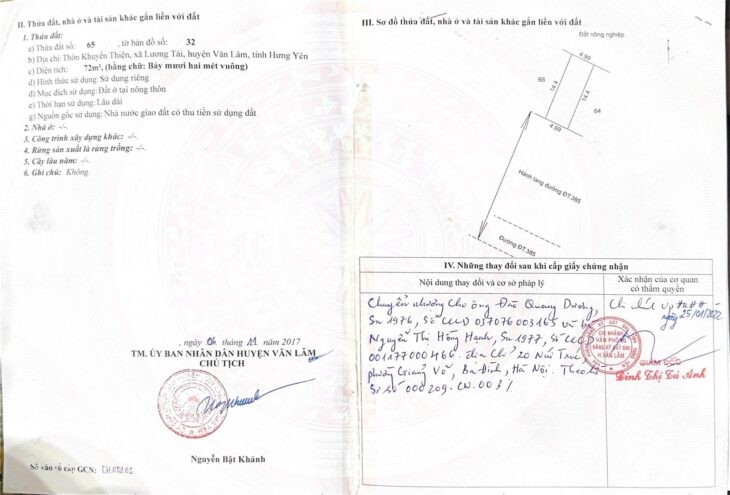 II. Thửa đất, nhà ở và tài sản khác gắn liền với đất
1. Thửa đất:
a) Thửa đất số: 65 , tờ bản đồ số: 32
b) Địa chỉ: Thôn Khuyến Thiện, xã Lương Tài, huyện Văn Lâm, tỉnh Hưng Yên
c) Diện tích: 72m², (bằng chữ: Bảy mươi hai mét vuông)
d) Hình thức sử dụng: Sử dụng riêng
đ) Mục đích sử dụng: Đất ở tại nông thôn
e) Thời hạn sử dụng: Lâu dài
g) Nguồn gốc sử dụng: Nhà nước giao đất có thu tiền sử dụng đất
2. Nhà ở: -/-
3. Công trình xây dựng khác: -/-
4. Rừng sản xuất là rừng trồng: -/-
5. Cây lâu năm: -/-
6. Ghi chú: Không.
ngày tháng 11 năm 2017
TM. ỦY BAN NHÂN DÂN HUYỆN VĂN LÂM
CHỦ TỊCH
Nguyễn Bật Khánh
Số vào sổ cấp GCN: CH00205
III. Sơ đồ thửa đất, nhà ở và tài sản khác gắn liền với đất
Đất nông nghiệp
4.99
66
14.4
14.4
64
4.99
Hành lang đường ĐT.385
Đường ĐT.385
IV. Những thay đổi sau khi cấp giấy chứng nhận
Nội dung thay đổi và cơ sở pháp lý
Xác nhận của cơ quan
có thẩm quyền
Chuyển nhượng cho ông Đào Quang Dương,
Sn 1976, Số CCCD 037076003165 và bà
Nguyễn Thị Hồng Hạnh, Sn 1977, Số CCCD
001177000466. Địa chỉ: 20 Núi Trúc,
phường Giảng Võ, Ba Đình, Hà Nội. Theo hồ
sơ số 000209.CN.003/
ngày 25/01/2022
CHI NHÁNH
VĂN PHÒNG
ĐĂNG KÝ ĐẤT ĐAI
H. VĂN LÂM
GIÁM ĐỐC
Đinh Thị Tú Anh